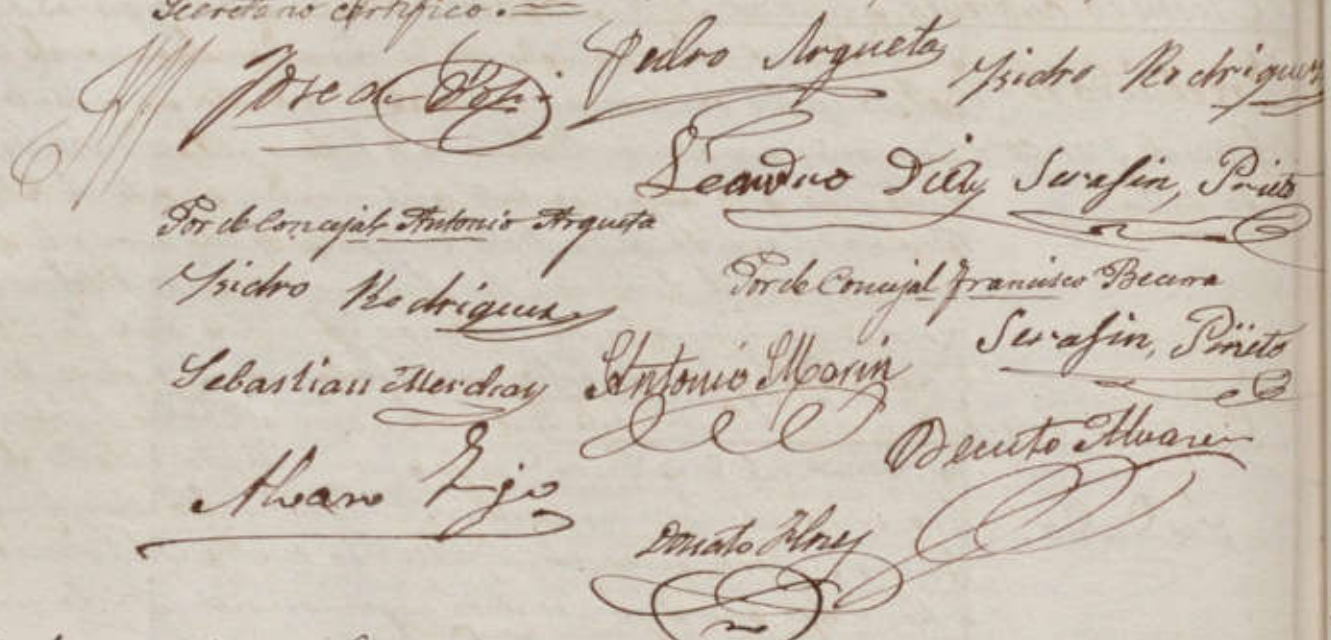 Secretario certifico.=
Pedro Argueta Ysidro Rodriguez
Leandro Diez Serafin, Prieto
Por el Concejal Antonio Argueta
Ysidro Rodriguez
Por el Concejal Francisco Becerra
Serafin, Prieto
Sebastian Antonio Marin
Benito Alvarez
Alvaro
Donato Florez